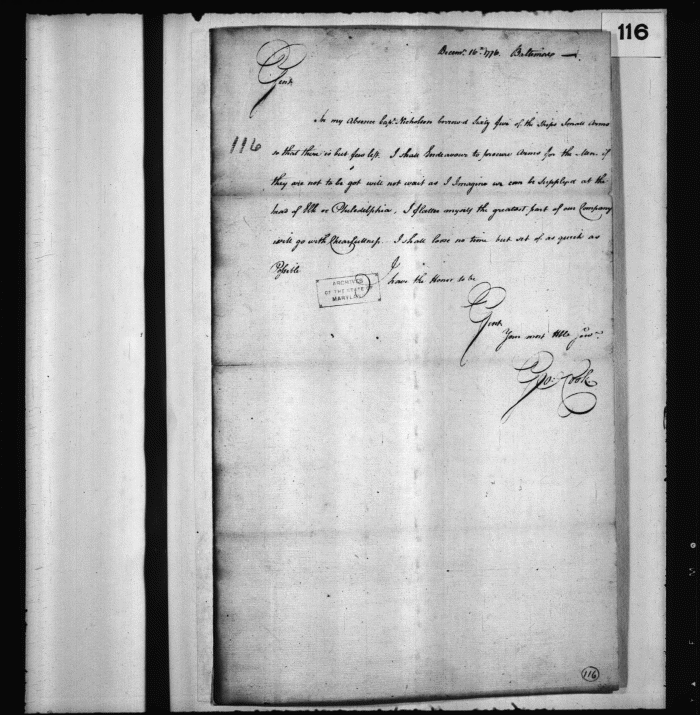 116
Decemr. 16th. 1776. Baltimore
Gent
In my Absence Capt. Nicholson borrowed Sixty five of the Ships Small Arms
116
so that there is but few left. I shall Endeavour to procure Arms for the Men if
they are not to be got will not wait as I Imagine we can be Supplyed at the
head of Elk or Philadelphia, I flatter myself the greatest part of our Company
will go with Chearfullness. I shall loose no time but set of as quick as
Possible
I have the Honor to be
ARCHIVES
OF THE STATE OF
MARYLAND
Gent
Your most Hble Servt.
Geo: Cook
116